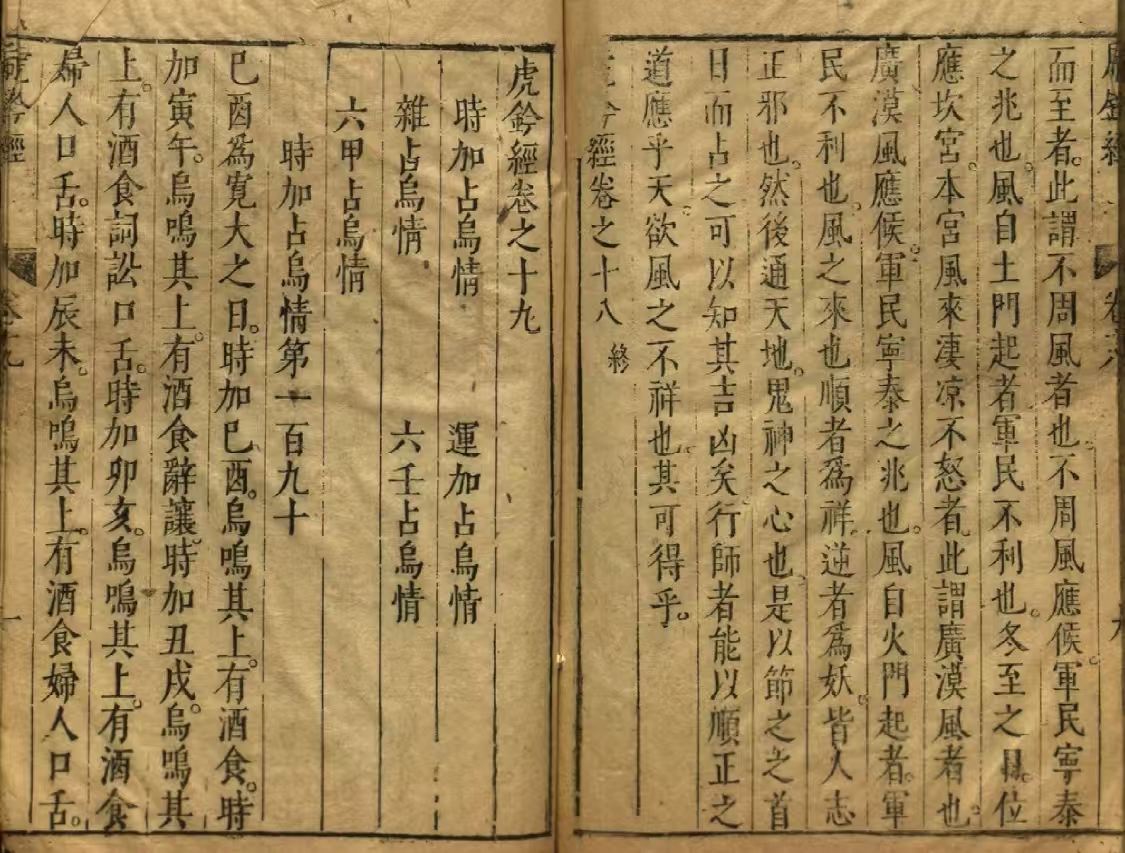 而至者。此謂不周風者也。不周風應候。軍民寧泰
之兆也。風自土門起者。軍民不利也。冬至之日。位
應坎宮。本宮風來淒凉不怒者。此謂廣漠風者也。
廣漠風應候。軍民寧泰之兆也。風自火門起者。軍
民不利也。風之來也。順者爲祥。逆者爲妖。皆人志
正邪也。然後通天地。鬼神之心也。是以節之之首
日而占之。可以知其吉凶矣。行師者能以順正之
道應乎天。欲風之不祥也。其可得乎。
虎鈐經卷之十八 終
虎鈐經卷之十九
時加占烏情 運加占烏情
雜占烏情 六壬占烏情
六甲占烏情
時加占烏情第一百九十
巳酉爲寬大之日。時加巳酉。烏鳴其上。有酒食。時
加寅午。烏鳴其上。有酒食辭讓。時加丑戌。烏鳴其
上。有酒食詞訟口舌。時加卯亥。烏鳴其上。有酒食
婦人口舌。時加辰未。烏鳴其上。有酒食婦人口舌。
虎鈐經 卷十九 一